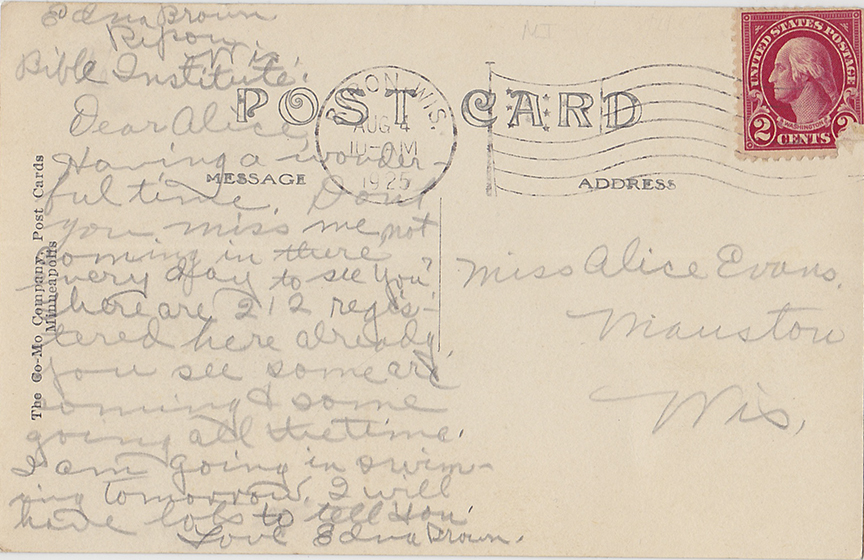 Edna Brown
Ripon,
Wis.
Bible Institute.
POST CARD
RIPON, WIS.
AUG 4
10- AM
1925
UNITED STATES POSTAGE
WASHINGTON
2 CENTS 2
MESSAGE
ADDRESS
The Co-Mo Company, Post Cards
Minneapolis
Dear Alice,
Having a wonder-
ful time. Dont
you miss me not
coming in there
every day to see you?
There are 212 regis-
tered here already,
you see some are
coming & some
going all the time.
I am going in swim-
ing tomorrow. I will
have lots to tell you
Love Edna Brown.
Miss Alice Evans,
Mauston
Wis.